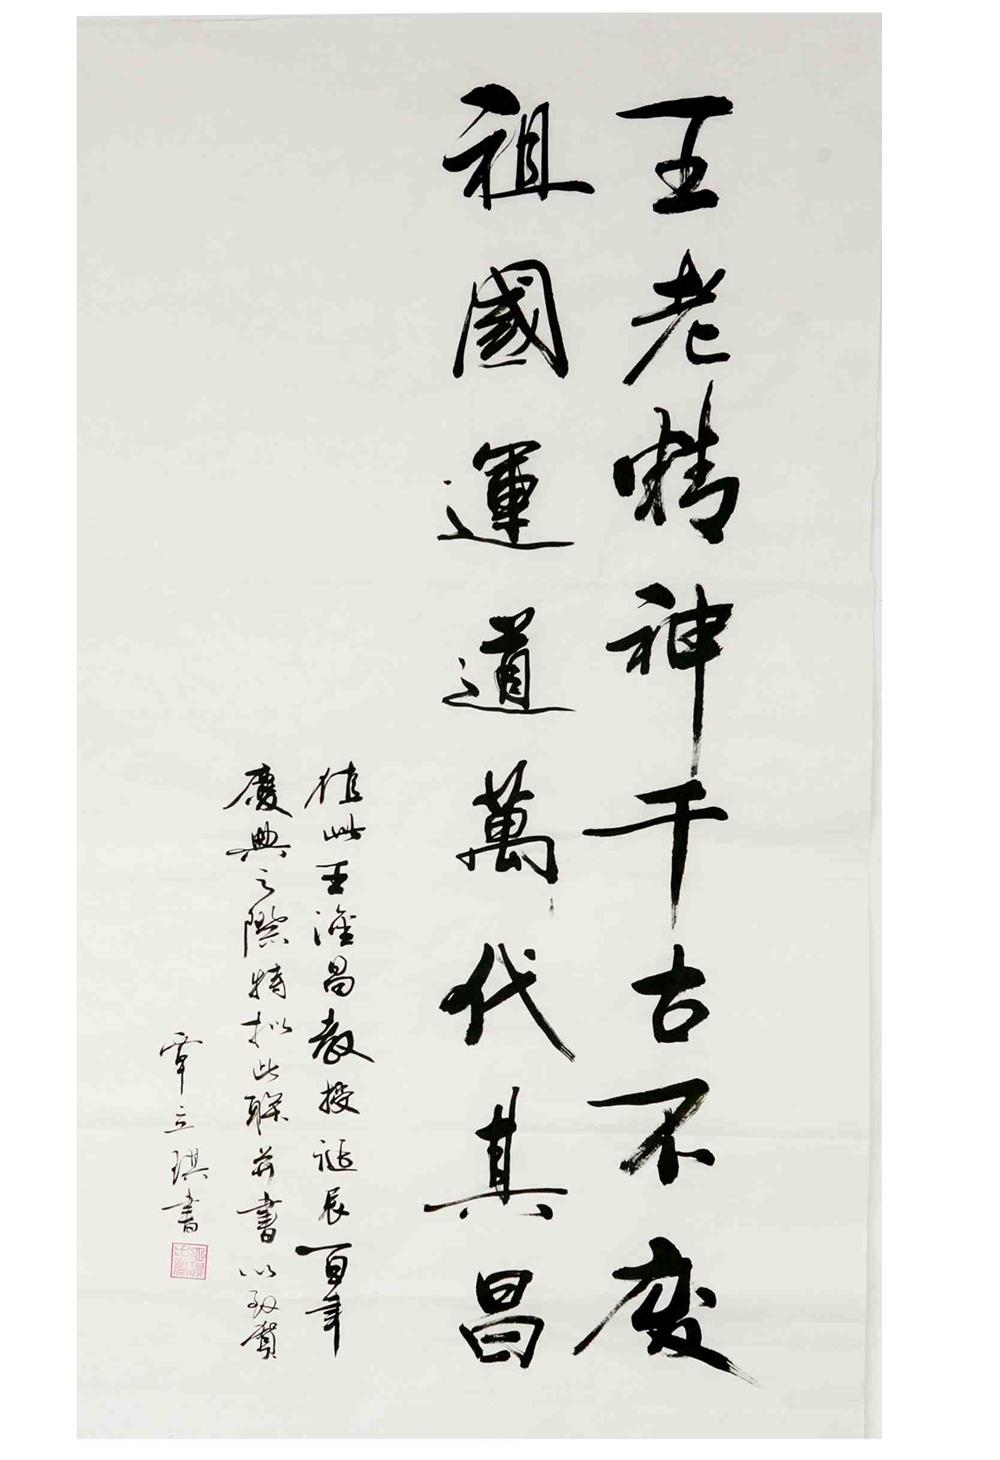 王老精神千古不变
祖國運道萬代其昌
值此王淦昌教授誕辰百年
慶典之際特拟此聯并書以致賀
覃立琪書